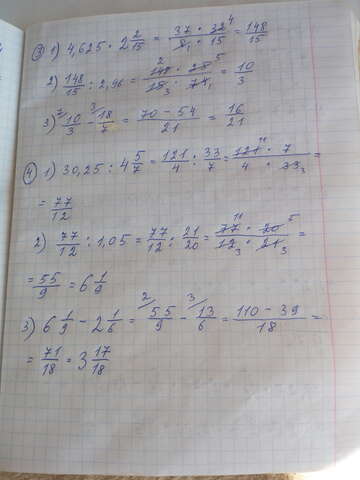 ③ 1) 4,625 · 2 2/15 = (37 · 32⁴)/(8₁ · 15) = 148/15
2) 148/15 : 2,96 = (148² · 25⁵)/(15₃ · 74₁) = 10/3
3) ⁷⁄10/3 − ³⁄18/7 = (70 − 54)/21 = 16/21
④ 1) 30,25 : 4 5/7 = 121/4 : 33/7 = (121¹¹ · 7)/(4 · 33₃) =
= 77/12
2) 77/12 : 1,05 = 77/12 : 21/20 = (77¹¹ · 20⁵)/(12₃ · 21₃) =
= 55/9 = 6 1/9
3) 6 1/9 − 2 1/6 = ²⁄55/9 − ³⁄13/6 = (110 − 39)/18 =
= 71/18 = 3 17/18